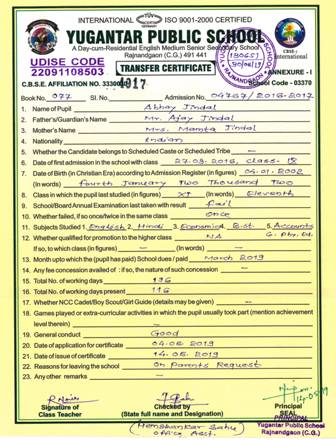 INTERNATIONAL ISO 9001-2000 CERTIFIED
YUGANTAR PUBLIC SCHOOL
A Day-cum-Residential English Medium Senior Secondary School
Rajnandgaon (C.G.) 491 441
UDISE CODE
22091108503
TRANSFER CERTIFICATE
ANNEXURE - I
C.B.S.E. AFFILIATION NO. 3330041017
School Code - 03370
Book No. 077 Sl. No. Admission No. 04767/2016-2017
1. Name of Pupil Abhay Jindal
2. Father's/Guardian's Name Mr. Ajay Jindal
3. Mother's Name Mrs. Mamta Jindal
4. Nationality Indian
5. Whether the Candidate belongs to Scheduled Caste or Scheduled Tribe —
6. Date of first admission in the school with class 27.03.2016, class-
7. Date of Birth (in Christian Era) according to Admission Register (in figures) 04-01-2002
(In words) fourth January Two Thousand Two
8. Class in which the pupil last studied (in figures) XI (in words) Eleventh
9. School/Board Annual Examination last taken with result fail
10. Whether failed, if so once/twice in the same class once
11. Subjects Studied 1. English 2. Hindi 3. Economics 4. B.st. 5. Accounts
6. Phy. Ed.
12. Whether qualified for promotion to the higher class NA
If so, to which class (in figures) — (In words) —
13. Month upto which the (pupil has paid) School dues / paid March 2019
14. Any fee concession availed of : if so, the nature of such concession —
15. Total No. of working days 196
16. Total No. of working days present 116
17. Whether NCC Cadet/Boy Scout/Girl Guide (details may be given) —
18. Games played or extra-curricular activities in which the pupil usually took part (mention achievement
level therein) —
19. General conduct Good
20. Date of application for certificate 04.06.2019
21. Date of issue of certificate 14.06.2019
22. Reasons for leaving the school On Parents Request
23. Any other remarks —
Signature of
Class Teacher
Checked by
(State full name and Designation)
Hemshankar Sahu
Office Asst.
Principal
SEAL
PRINCIPAL
Yugantar Public School
Rajnandgaon (C.G.)